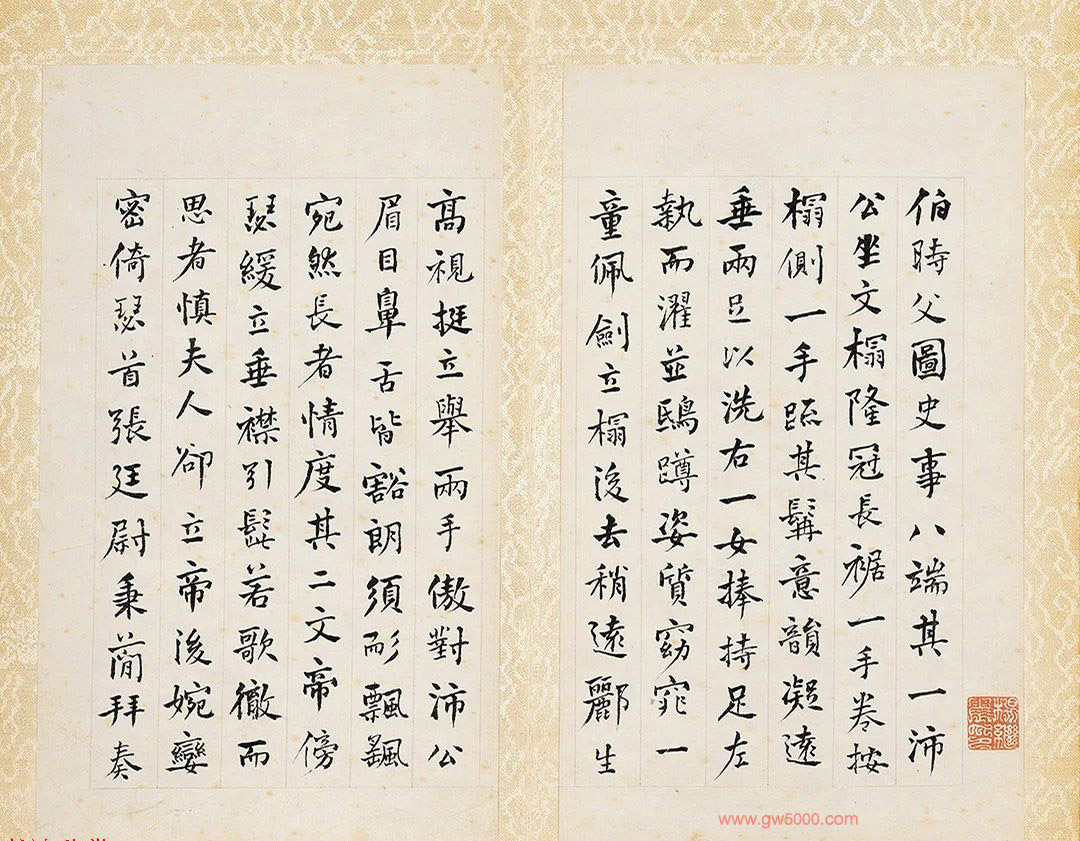 伯時父圖史事八端其一沛
公坐文榻隆冠長裾一手卷按
榻側一手䟽其髯意韻凝遠
垂兩足以洗右一女捧持足左
執而濯並鴟蹲姿質窈窕一
童佩劍立榻後去稍遠酈生
高視挺立舉兩手傲對沛公
眉目鼻舌皆豁朗須彡飄飄
宛然長者情度其二文帝傍
瑟緩立垂襟引髭若歌徹而
思者慎夫人卻立帝後婉孌
密倚瑟首張廷尉秉蕳拜奏
www.gw5000.com